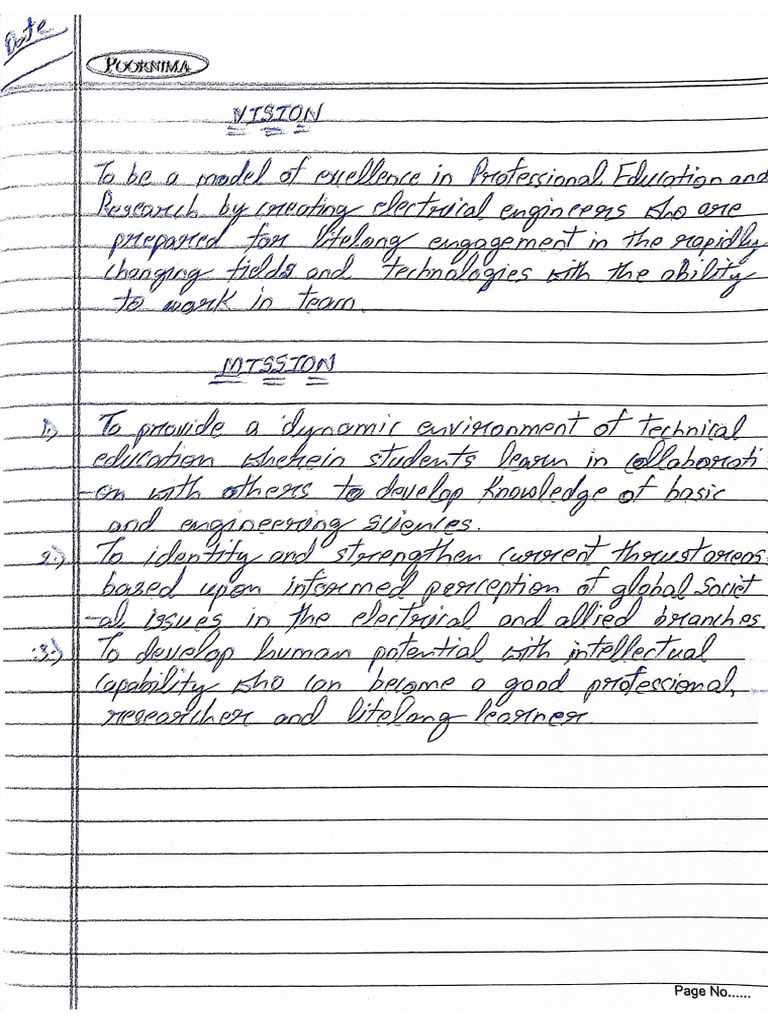 Date
POORNIMA
VISION
To be a model of excellence in Professional Education and
Research by creating electrical engineers who are
prepared for lifelong engagement in the rapidly
changing fields and technologies with the ability
to work in team.
MISSION
1.) To provide a dynamic environment of technical
education wherein students learn in collaborati
-on with others to develop knowledge of basic
and engineering sciences.
2.) To identify and strengthen current thrust areas
based upon informed perception of global societ
-al issues in the electrical and allied branches.
3.) To develop human potential with intellectual
capability who can become a good professional,
researcher and lifelong learner.
Page No......